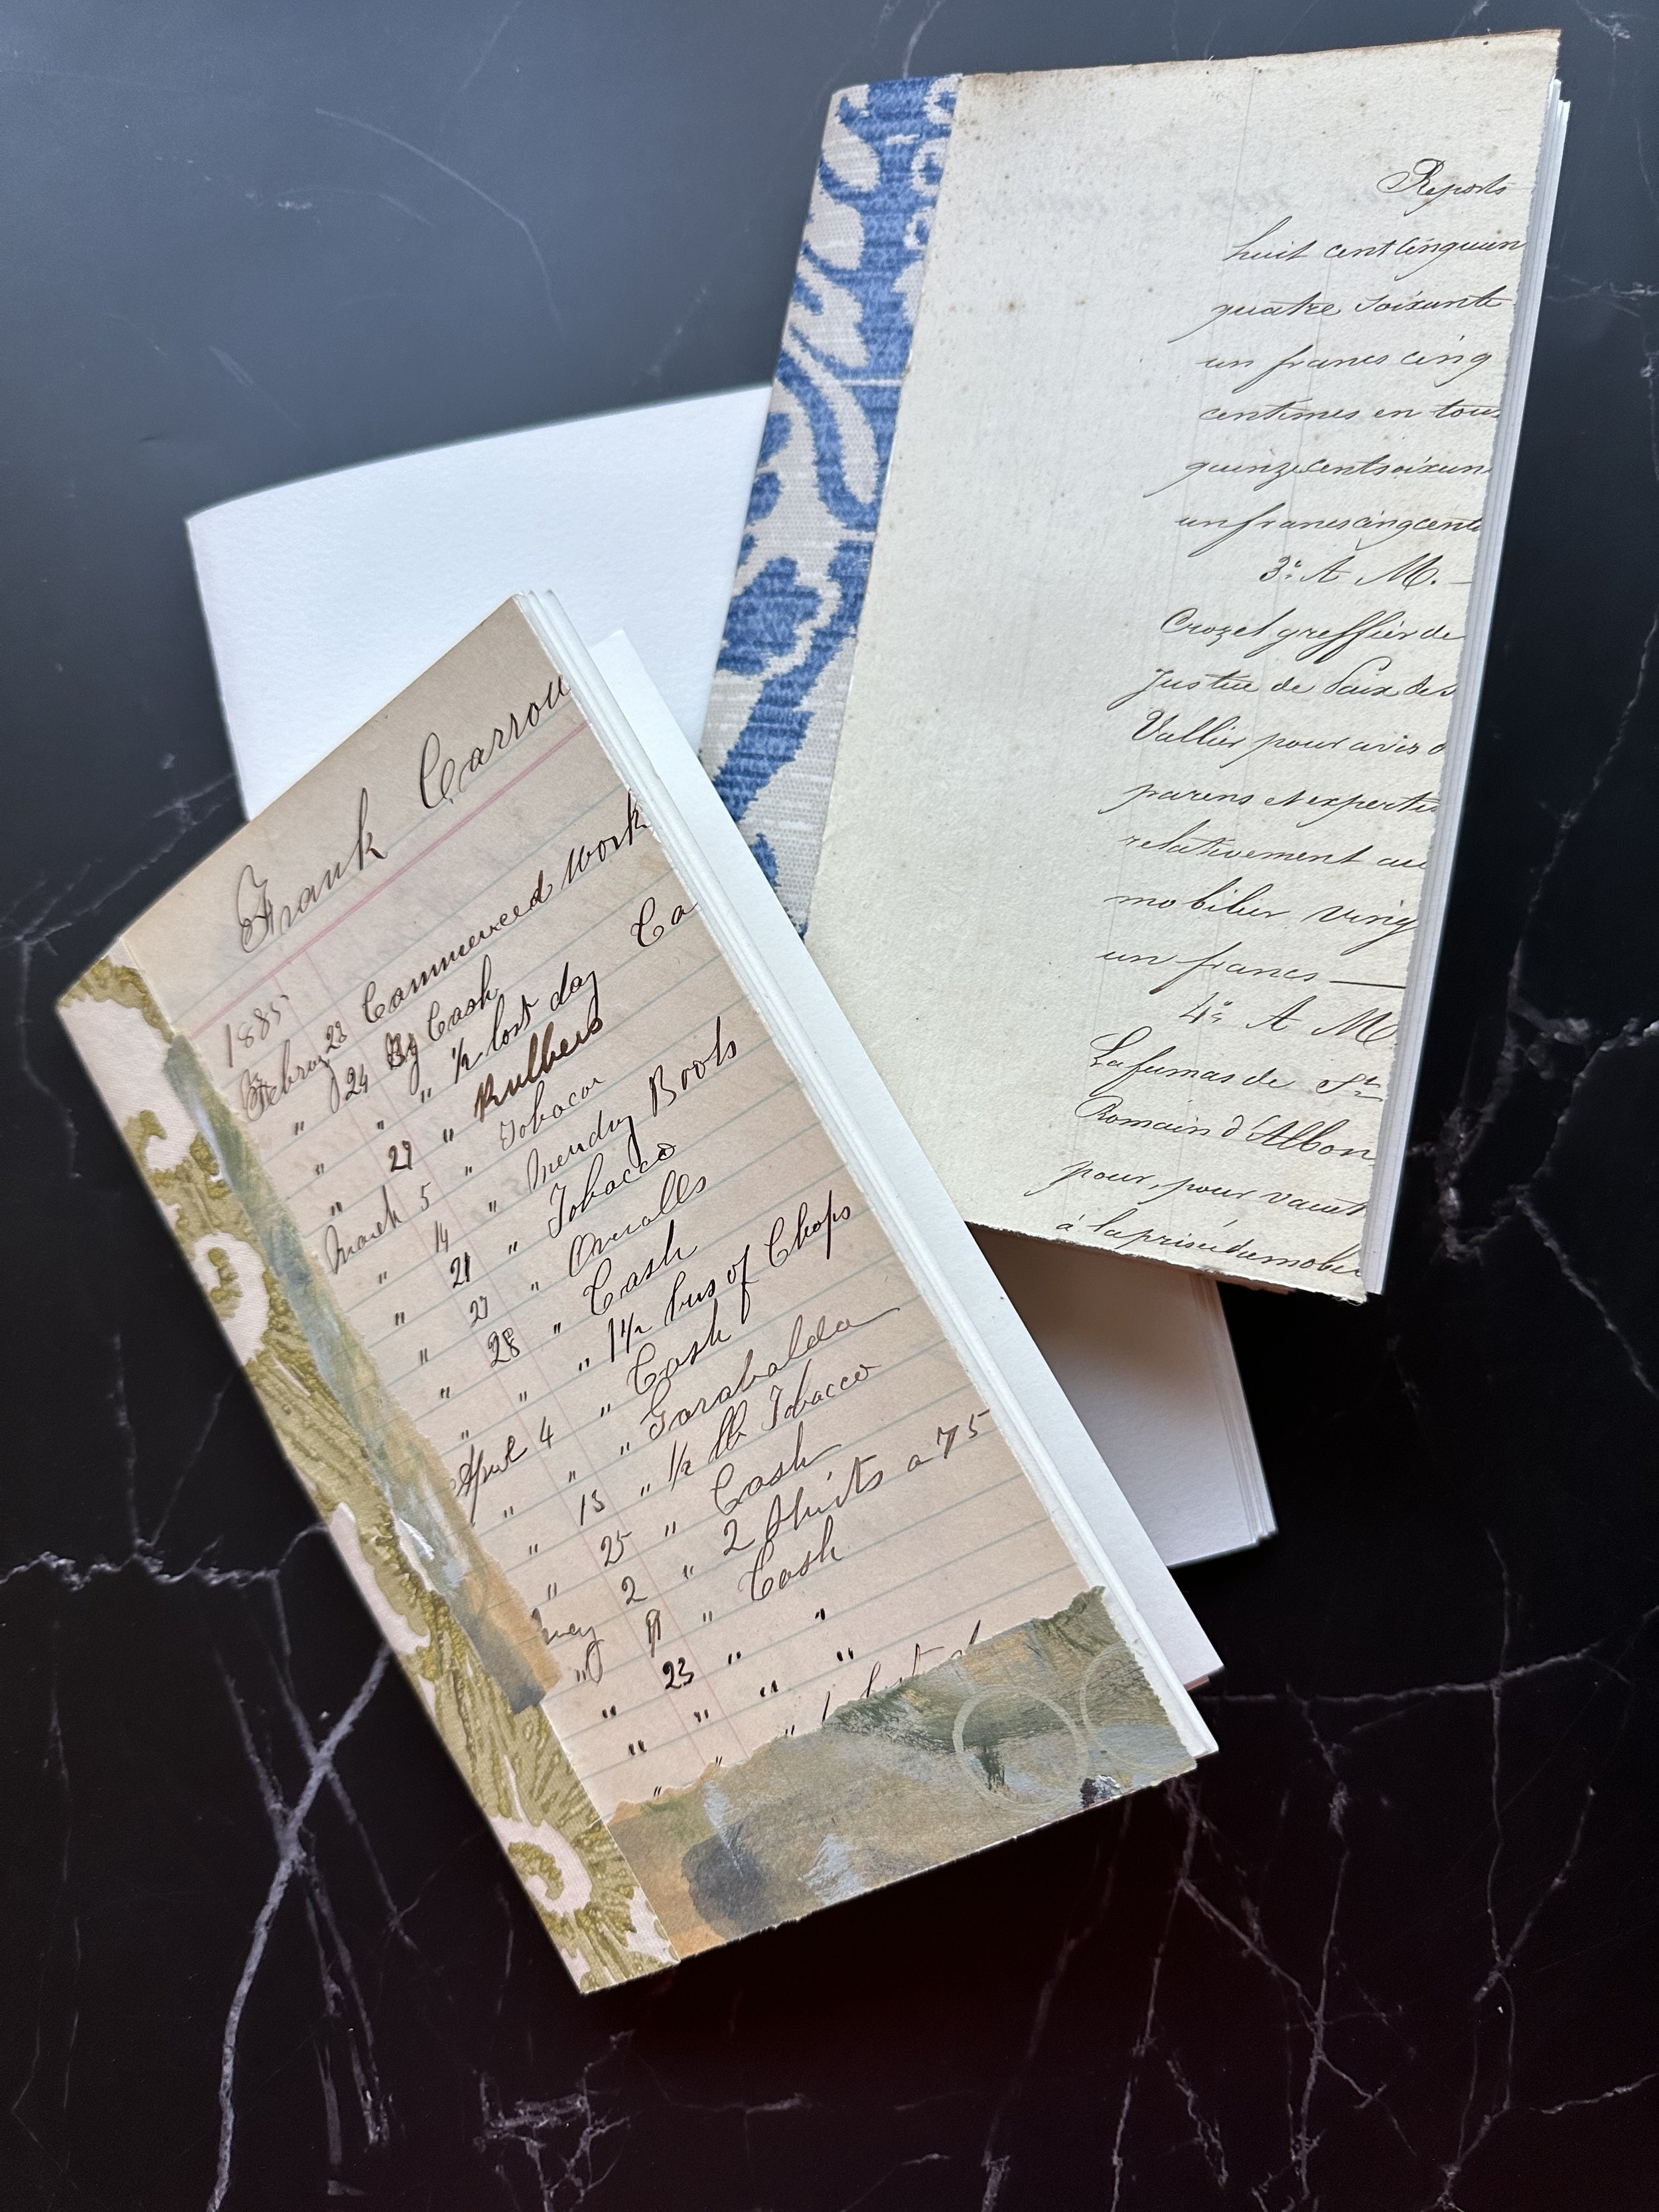 Frank Carrou
1885
Februy 23 Commenced Work
" 24 By Cash Ca
" " " 1/2 lost day
" 27 " Rubbers
March 5 " Tobacco
" 14 " Mending Boots
" 21 " Tobacco
" 27 " Overalls
" 28 " Cash
" " " 1 1/2 bus of Chops
April 4 " Cash
" " " Garabalda
" 15 " 1/2 lb Tobacco
" 25 " Cash
May 2 " 2 Shirts a 75
" 9 " Cash
" 23 " "
" " " "
Reports
huit cent cinquan
quatre soixante
un francs cinq
centimes en tous
quinze cent soixan
un francs cinq cent
3° A M. —
Crozel greffier de
Justice de Paix de S
Vallier pour avis d
parens et expertis
relativement au
mobilier vingt
un francs —
4° A M
Lafumas de St
Romain d'Albon
pour, pour vacat
à la prisée du mobil